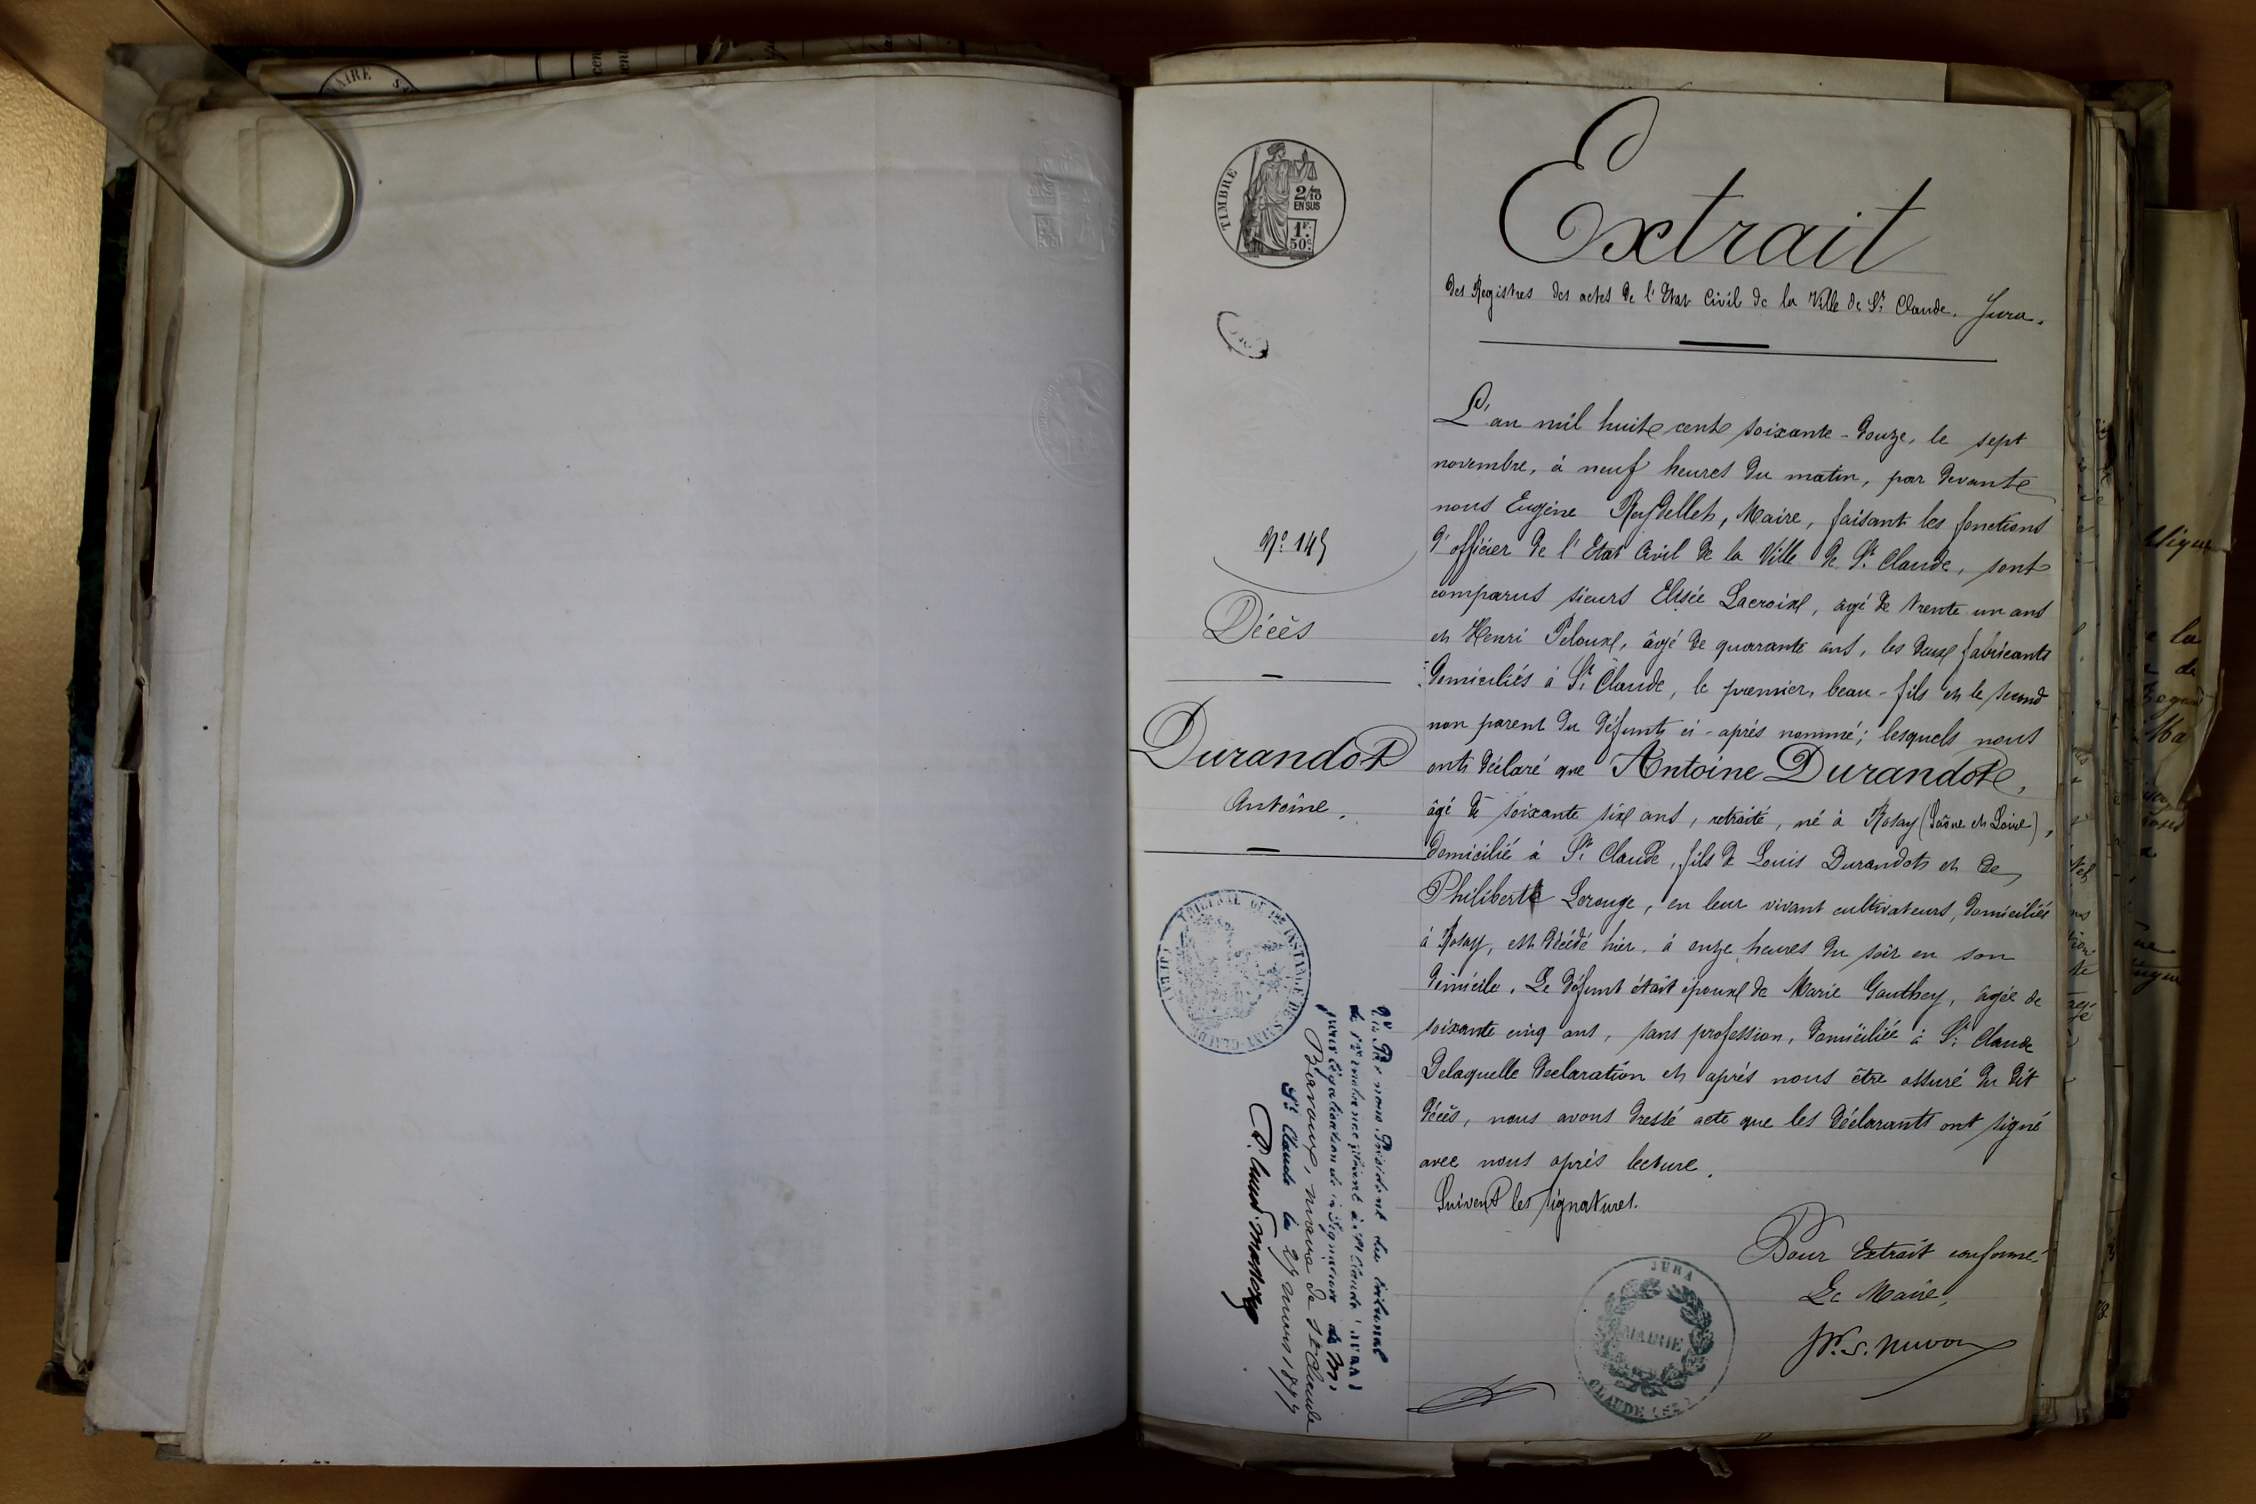 TIMBRE
2/10
EN SUS
1F.
50c.
Extrait
des Registres des actes de l'Etat Civil de la Ville de St. Claude. Jura.
L'an mil huit cent soixante-douze, le sept
novembre, à neuf heures du matin, par devant
nous Eugène Reydellet, Maire, faisant les fonctions
d'officier de l'Etat Civil de la Ville de St. Claude, sont
comparus sieurs Elisée Lacroix, âgé de trente un ans
et Henri Peloux, âgé de quarante ans, les deux fabricants
domiciliés à St. Claude, le premier, beau-fils et le second
non parent du défunt ci-après nommé; lesquels nous
ont déclaré que Antoine Durandot,
âgé de soixante six ans, retraité, né à Rosay (Saône et Loire),
domicilié à St. Claude, fils de Louis Durandot et de
Philiberte Lerouge, en leur vivant cultivateurs, domiciliés
à Rosay, est décédé hier, à onze heures du soir en son
domicile. Le défunt était époux de Marie Gauthey, âgée de
soixante cinq ans, sans profession, domiciliée à St. Claude
Delaquelle déclaration et après nous être assuré du dit
décès, nous avons dressé acte que les déclarants ont signé
avec nous après lecture.
Suivent les signatures.
Pour Extrait conforme,
Le Maire,
JURA
MAIRIE
CLAUDE (St.)
No. 145
Décès
Durandot
Antoine.
TRIBUNAL DE 1re INSTANCE DE SAINT-CLAUDE (JURA)
Vu Par nous, Président du tribunal
de 1re instance séant à St Claude (Jura)
pour légalisation de la Signature de Mr
maire de St Claude
St Claude le 27 mars 1877